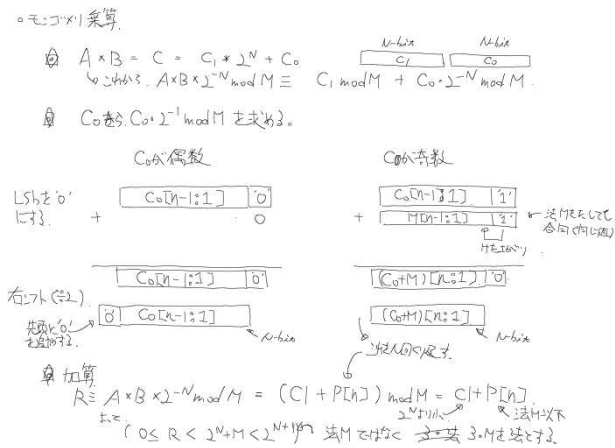 ○モンゴメリ乗算
A × B = C = C₁ * 2^N + C₀
N-bit N-bit
C₁ C₀
これから、A×B×2^-N mod M ≡ C₁ mod M + C₀・2^-N mod M.
C₀から、C₀・2^-1 mod M を求める。
C₀が偶数 C₀が奇数
LSbを'0'
にする。
C₀[n-1:1] '0'
+ 0
C₀[n-1:1] '1'
+ M[n-1:1] '1'
法Mをたしても
合同(同じ値)
けた上がり
C₀[n-1:1] '0'
(C₀+M)[n:1] '0'
右シフト(÷2)
先頭に'0'
'0' C₀[n-1:1]
N-bit
(C₀+M)[n:1]
N-bit
これをN回くり返す.
加算
R ≡ A×B×2^-N mod M = (C1+P[n]) mod M = C1+P[n].
2^Nより小 法M以下
よって
(0≤ R < 2^N+M < 2^N+1 法Mではなく 3・Mを法とする。